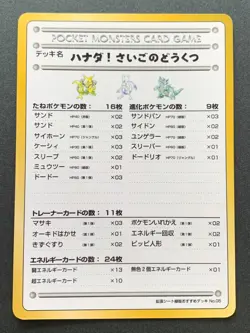 POCKET MONSTERS CARD GAME
デッキ名 ハナダ!さいごのどうくつ
たねポケモンの数: 16枚
サンド ×02
サンド ×02
サイホーン ×03
ケーシィ ×03
スリープ ×03
ミュウツー ×01
ドードー ×02
進化ポケモンの数: 9枚
サンドパン ×03
サイドン ×02
ユンゲラー ×02
スリーパー ×01
ドードリオ ×01
トレーナーカードの数: 11枚
マサキ ×03
オーキドはかせ ×01
きずぐすり ×02
ポケモンいれかえ ×02
エネルギー回収 ×02
ピッピ人形 ×01
エネルギーカードの数: 24枚
闘エネルギーカード ×13
超エネルギーカード ×10
無色2個エネルギーカード ×01
拡張シート
おすすめデッキ